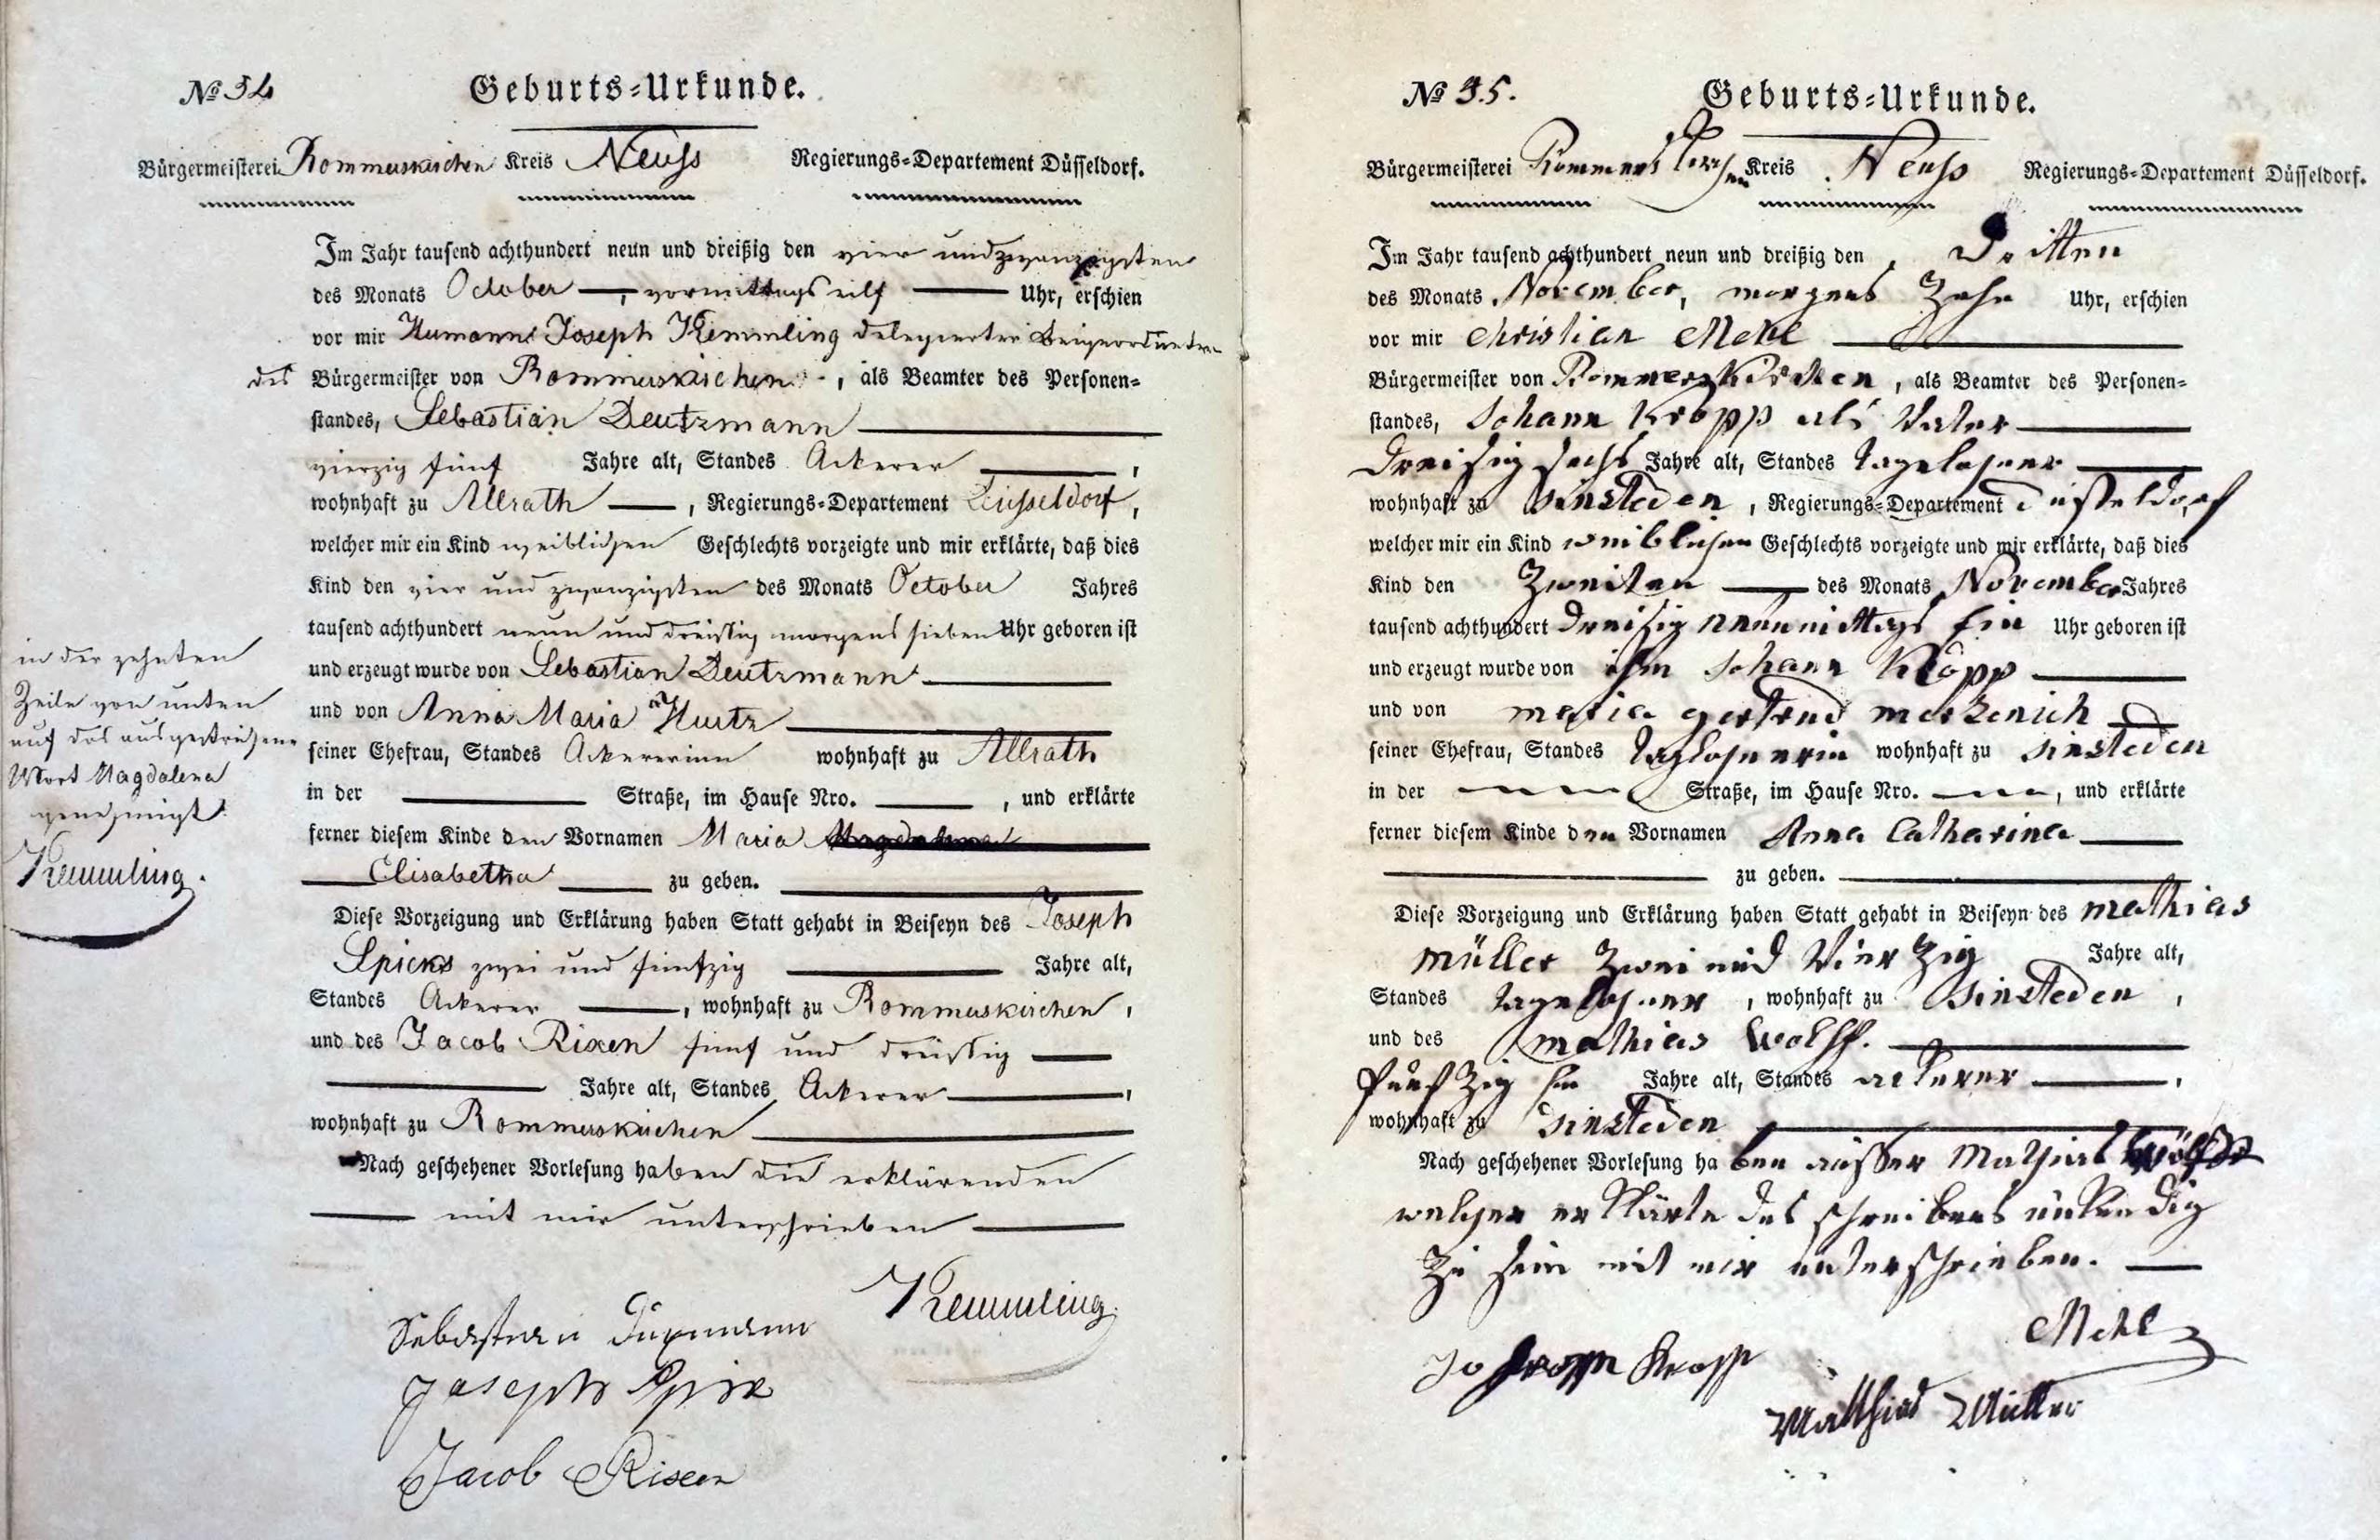 № 34
Geburts-Urkunde.
Bürgermeisterei Rommerskirchen Kreis Neuss Regierungs-Departement Düsseldorf.
Im Jahr tausend achthundert neun und dreißig den vier und zwanzigsten
des Monats October —, vormittags eilf — Uhr, erschien
vor mir Joseph Kemmling delegierter Beigeordneter
des Bürgermeister von Rommerskirchen, als Beamter des Personen-
standes, Sebastian Deutzmann
vierzig fünf Jahre alt, Standes Ackerer —,
wohnhaft zu Allrath —, Regierungs-Departement Düsseldorf,
welcher mir ein Kind weiblichen Geschlechts vorzeigte und mir erklärte, daß dies
Kind den vier und zwanzigsten des Monats October Jahres
tausend achthundert neun und dreissig morgens sieben Uhr geboren ist
und erzeugt wurde von Sebastian Deutzmann
und von Anna Maria Hurtz
seiner Ehefrau, Standes Ackererinn wohnhaft zu Allrath
in der — Straße, im Hause Nro. —, und erklärte
ferner diesem Kinde den Vornamen Maria Magdalena
Elisabetha — zu geben.
Diese Vorzeigung und Erklärung haben Statt gehabt in Beiseyn des Joseph
Spicks zwei und fünfzig — Jahre alt,
Standes Ackerer —, wohnhaft zu Rommerskirchen,
und des Jacob Rixen fünf und dreissig —
— Jahre alt, Standes Ackerer —,
wohnhaft zu Rommerskirchen
Nach geschehener Vorlesung haben die erklärenden
— mit mir unterschrieben —
Kemmling.
Joseph Spix
Jacob Rixen
in der zehnten
Zeile von unten
auf das ausgestrichene
Wort Magdalena
genehmigt.
Kemmling.
№ 35.
Geburts-Urkunde.
Bürgermeisterei Rommerskirchen Kreis Neuss Regierungs-Departement Düsseldorf.
Im Jahr tausend achthundert neun und dreißig den Dritten
des Monats November, morgens Zehn Uhr, erschien
vor mir Christian Mehl —
Bürgermeister von Rommerskirchen, als Beamter des Personen-
standes, Johann Kropp als Vater —
Dreisig sechs Jahre alt, Standes Tagelohner —
wohnhaft zu Sinsteden, Regierungs-Departement Düsseldorf
welcher mir ein Kind weiblichen Geschlechts vorzeigte und mir erklärte, daß dies
Kind den Zweiten — des Monats November Jahres
tausend achthundert Dreisig neun mittags Ein Uhr geboren ist
und erzeugt wurde von ihm Johann Kropp —
und von maria gertrud merkenich —
seiner Ehefrau, Standes Taglohnerin wohnhaft zu Sinsteden
in der — Straße, im Hause Nro. —, und erklärte
ferner diesem Kinde den Vornamen Anna Catharina —
— zu geben. —
Diese Vorzeigung und Erklärung haben Statt gehabt in Beiseyn des mathias
müller Zwei und Vierzig Jahre alt,
Standes Tagelohner, wohnhaft zu Sinsteden,
und des mathias Wolff. —
fünfzig Jahre alt, Standes ackerer —,
wohnhaft zu Sinsteden —
Nach geschehener Vorlesung haben ausser Mathias Wolff
welcher erklärte des schreibens unkundig
zu sein mit mir unterschrieben. —
Mehl
Kropp
Matthias Müller